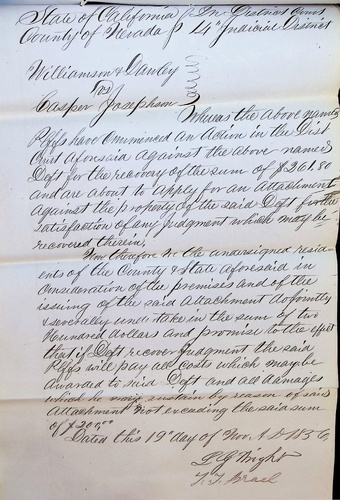 State of California } In District Court
County of Nevada } 14th Judicial District
Williamson & Dawley
vs
Casper Josephson
Whereas the above named
Plffs have commenced an Action in the Dist
Court aforesaid against the above named
Deft for the recovery of the sum of $261.80
and are about to apply for an Attachment
against the property of the said Deft for the
satisfaction of any judgment which may be
recovered therein.
Now therefore we the undersigned resid-
ents of the County & State aforesaid in
consideration of the premises and of the
issuing of the said Attachment do jointly
& severally undertake in the sum of two
Hundred dollars and promise to the effect
that if Deft recover judgment the said
Plffs will pay all costs which may be
awarded to said Deft and all damages
which he may sustain by reason of said
Attachment not exceeding the said sum
of $200.00
Dated this 19th day of Nov. A D 1856
Wright
Israel